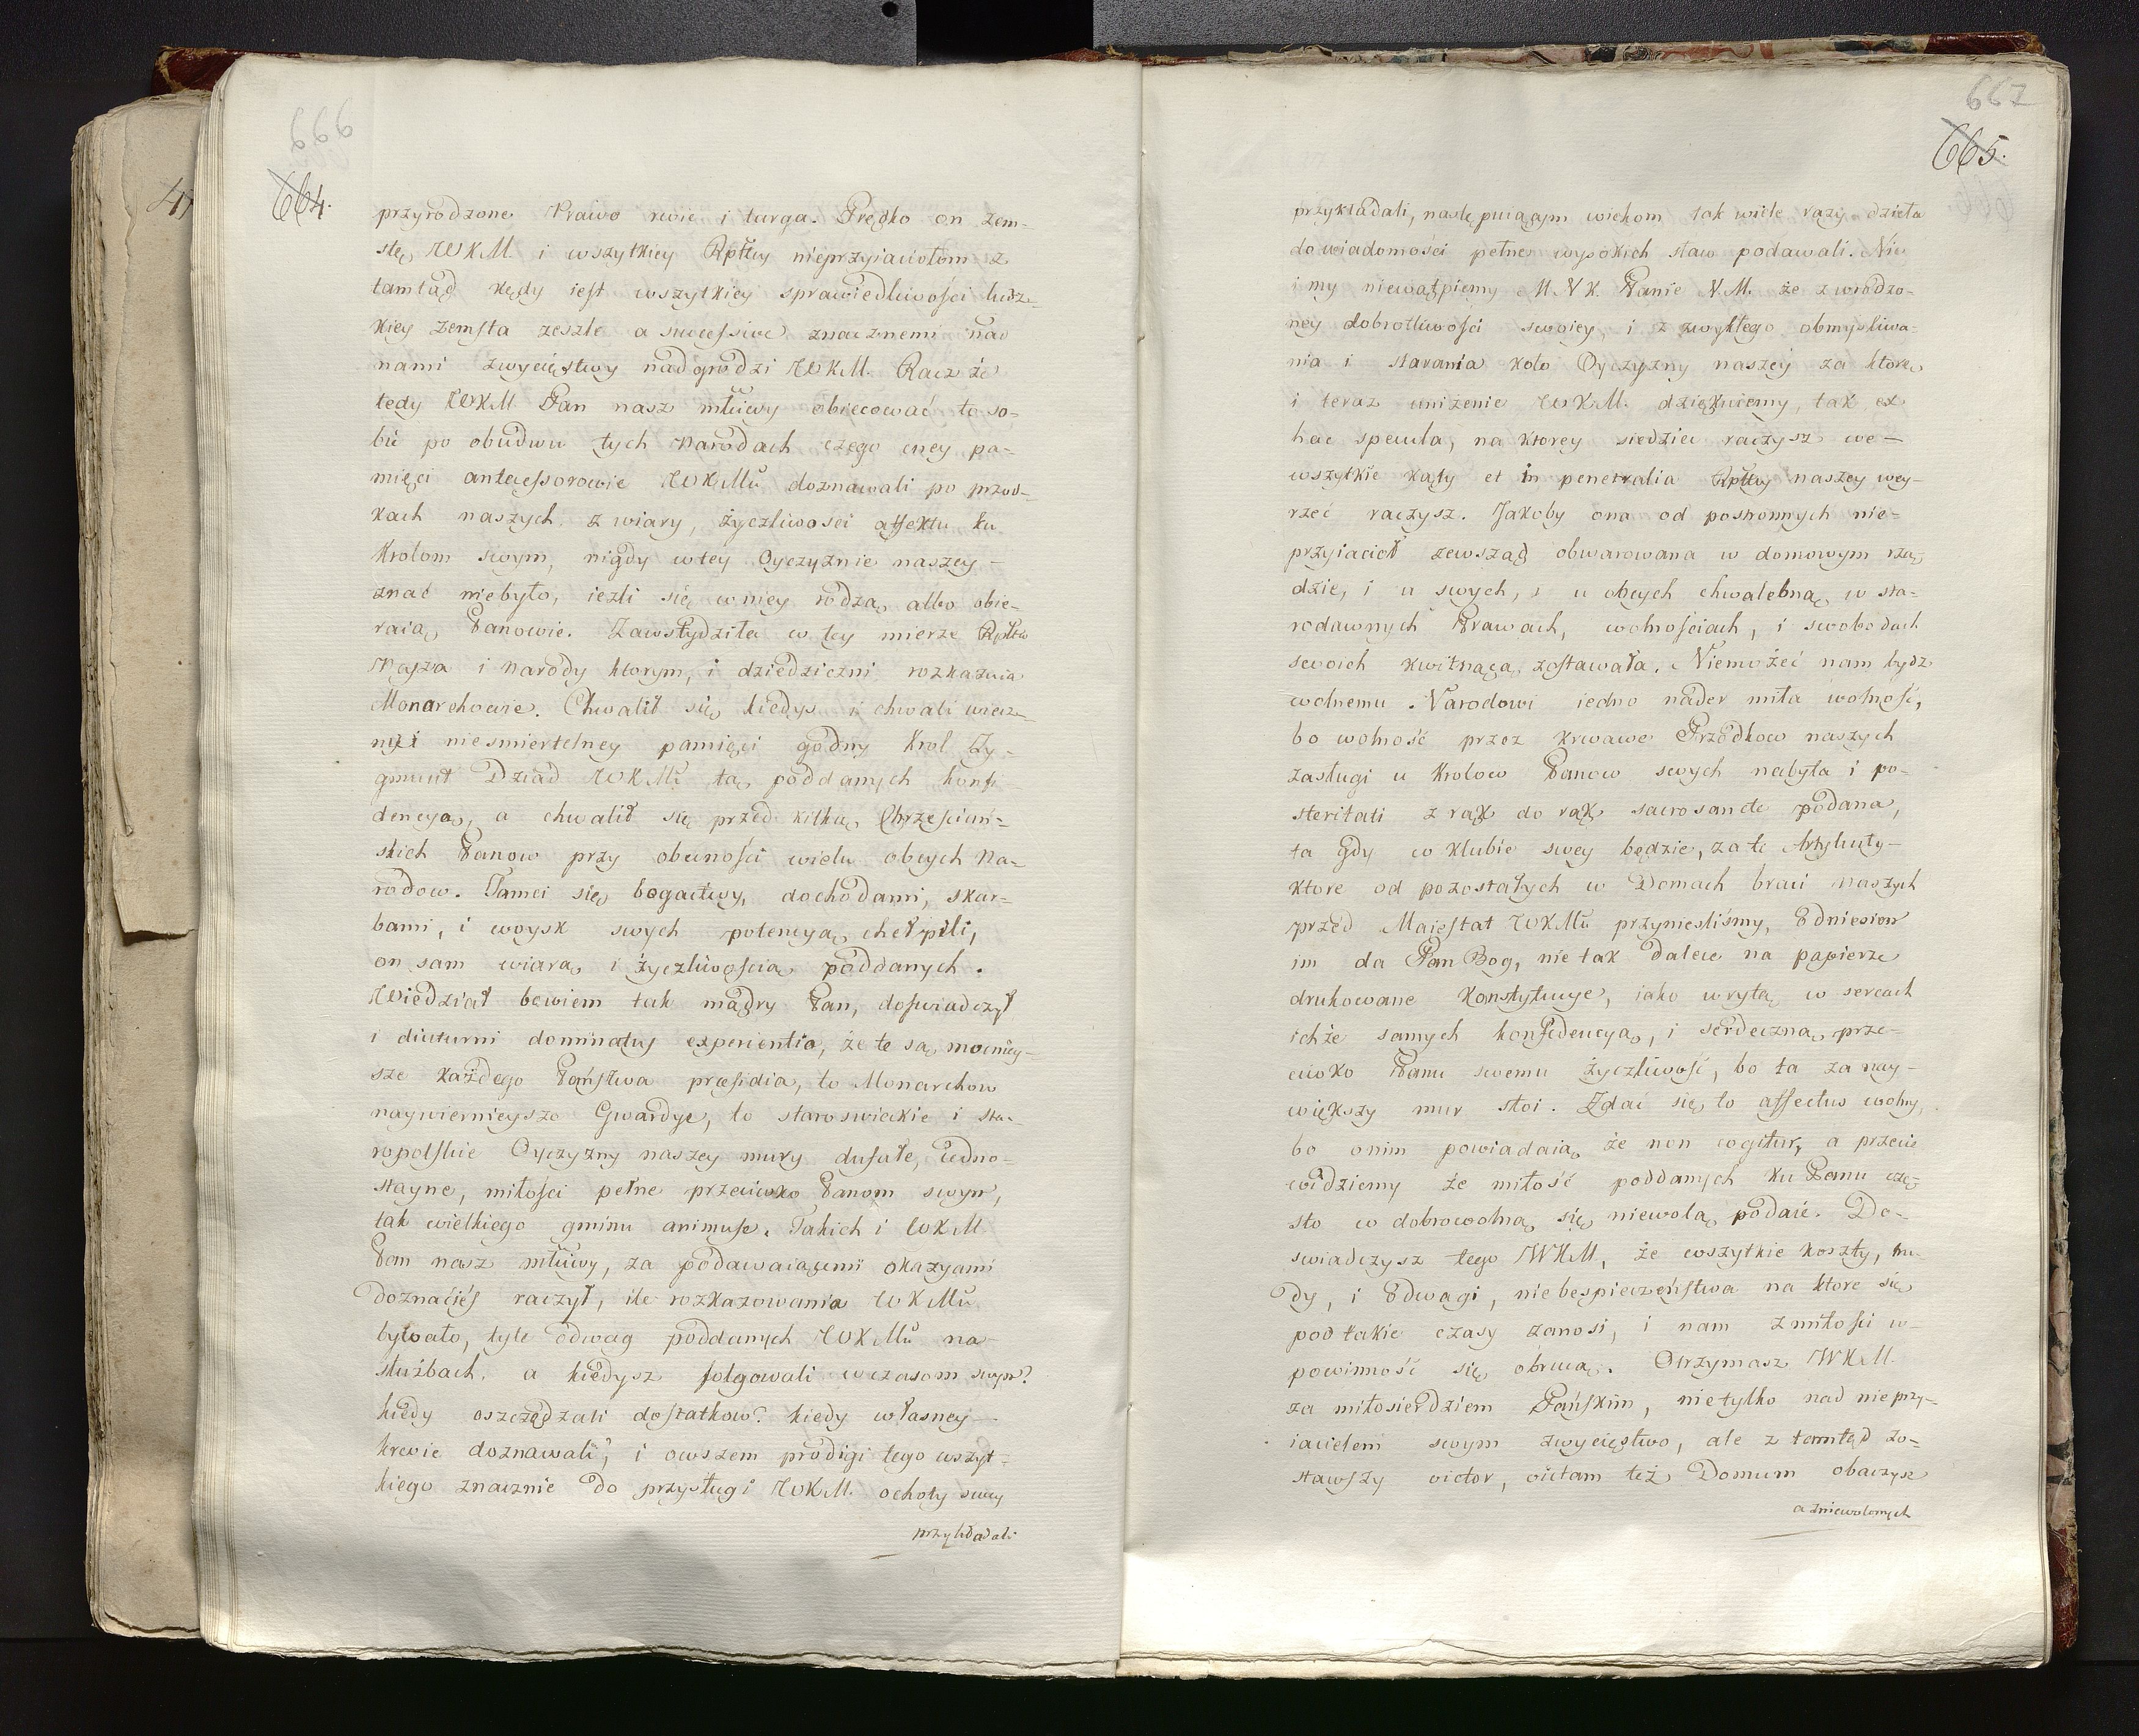 666
664.
przyrodzone Prawo rwie i targa. Prędko on zem-
stę WKM. i wszytkiey Rptey nieprzyiaciołom z
tamtąd kędy iest wszytkiey sprawiedliwości ludz-
kiey zemsta zeszle a successive znacznemi nad
nami zwycięstwy nadgrodzi WKM. Racz że
tedy WKM Pan nasz młciwy obiecować to so-
bie po obudwu tych Narodach czego cney pa-
mięci antecessorowie WKMci doznawali po przod-
kach naszych z wiary, życzliwosci affektu ku
Krolom swym, nigdy wtey Oyczyznie naszey -
znać niebyło, iezli się wniey rodzą albo obie-
raią Panowie. Zawstydziła w tey mierze Rptta
Nasza i Narody ktorym, i dziedziczni rozkazuią
Monarchowie. Chwalił się kiedys i chwali wiecz-
ney i niesmiertelney pamięci godny Krol Zy-
gmunt Dziad WKMci tą poddanych konfi-
dencyą, a chwalił się przed kilką Chrześciań-
skich Panow przy obecności wielu obcych Na-
rodow. Tamci się bogactwy, dochodami, skar-
bami, i woysk swych potencyą chełpili,
on sam wiarą i życzliwoscią poddanych.
Wiedział bowiem tak mądry Pan, doswiadczył
i diuturni dominatus experientia, że te są mocniey-
sze każdego Państwa præsidia, to Monarchow
naywiernieysze Gwardye, to staroswieckie i sta-
ropolskie Oyczyzny naszey mury dufałe, iedno-
stayne, miłości pełne przeciwko Panom swym,
tak wielkiego gminu animusze. Takich i WKM
Pan nasz młciwy, za podawaiącemi okazyami
doznaćieś raczył, ile rozkazowania WKMci
bywało, tyle odwag poddanych WKMci na
służbach. a kiedysz folgowali wczasom swym?
kiedy oszczędzali dostatkow? kiedy własney -
krewie doznawali? i owszem prodigi tego wszyt-
kiego znacznie do przysługi WKM. ochoty swey
przykładali
667
665.
przykładali, następuiącym wiekom tak wiele razy dzieła
do wiadomości pełne wysokich sław podawali. Nic
i my niewątpiemy M.N.K. Panie N.M. że z wrodzo-
ney dobrotliwości swoiey, i z zwykłego obmysliwa-
nia i starania koło Oyczyzny naszey za ktore
i teraz uniżenie WKM. dziękuiemy, tak ex
hac specula, na ktorey siedzieć raczysz we -
wszytkie kąty et in penetralia Rptey naszey wey-
rzeć raczysz. Jakoby ona od postronnych nie-
przyiacioł zewsząd obwarowana w domowym rzą-
dzie, i u swych, i u obcych chwalebną, w sta-
rodawnych Prawach, wolnościach, i swobodach
swoich kwitnącą zostawała. Niemożeć nam bydz
wolnemu Narodowi iedno nader miła wolność,
bo wolność przez krwawe Przodkow naszych
zasługi u Krolow Panow swych nabyta i po-
steritati z rąk do rąk sacrosancte podana,
ta gdy w klubie swey będzie, za te Artykuły -
ktore od pozostałych w Domach braci naszych
przed Maiestat WKMci przynieslismy, odniesiem
im da Pan Bog, nie tak dalece na papierze
drukowane Konstytucye, iako wrytą w sercach
ichże samych konfidencyą, i serdeczną prze-
ciwko Panu swemu życzliwość, bo ta za nay-
większy mur stoi. Zdać się to affectus wolny,
bo onim powiadaią że non cogitur, a przecie
widziemy że miłość poddanych ku Panu czę-
sto w dobrowolną się niewolą podaie. Do-
swiadczysz tego WKM, że wszytkie koszty, tru-
dy, i odwagi, niebespieczeństwa na ktore się
pod takie czasy zanosi, i nam z miłości w -
powinność się obrocą. Otrzymasz WKM.
za miłosierdziem Pańskim, nietylko nad nieprzy-
iacielem swym zwycięstwo, ale z tamtąd zo-
stawszy victor, victam też Domum obaczysz
a zniewolonych